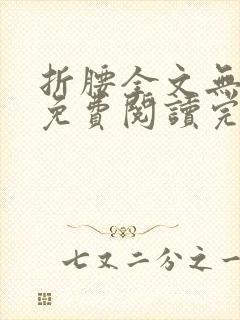 折腰全文無
免費閱讀完
七又二分之一